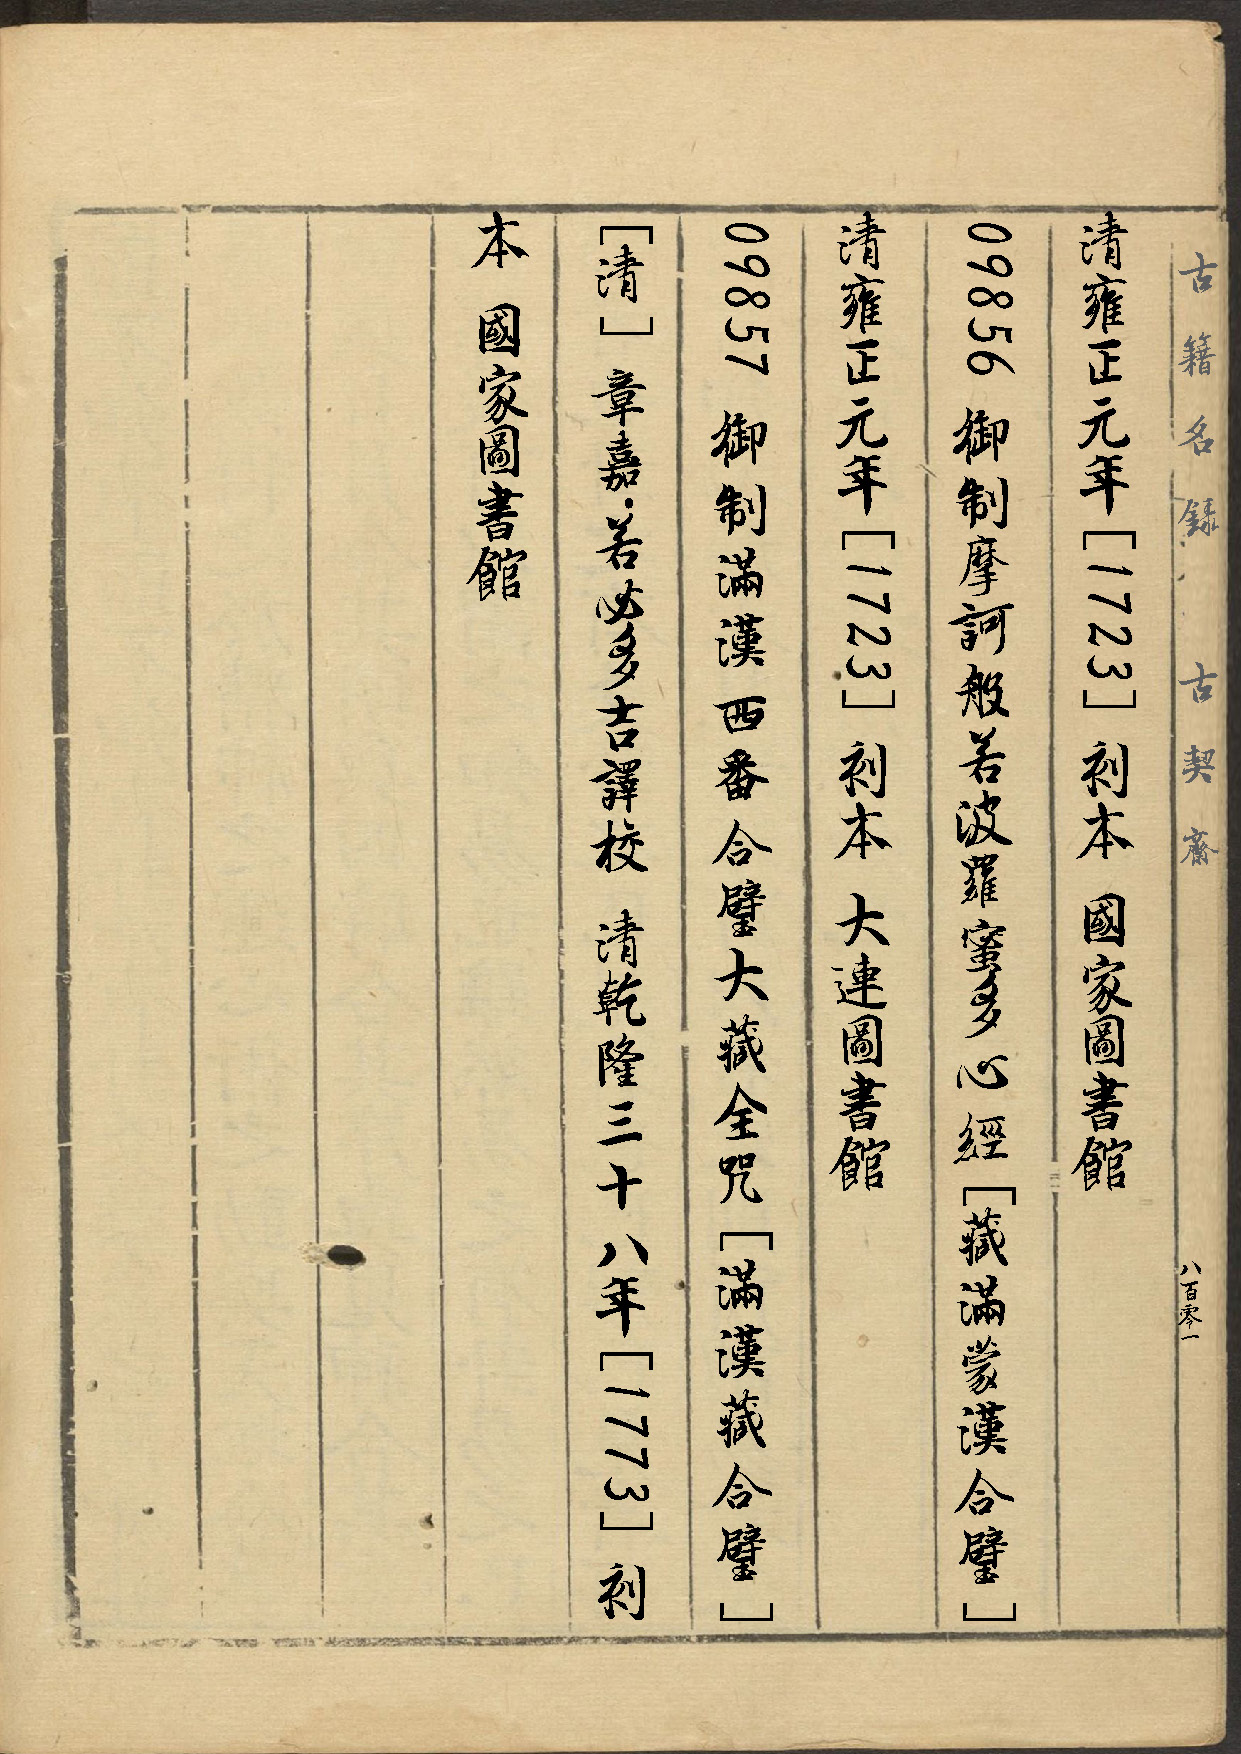 古籍名錄 古契齋
八百零一
清雍正元年[1723]刻本 國家圖書館
09856 御制摩訶般若波羅蜜多心經[藏滿蒙漢合璧]
清雍正元年[1723]刻本 大連圖書館
09857 御制滿漢西番合璧大藏全咒[滿漢藏合璧]
[清]章嘉·若必多吉譯校 清乾隆三十八年[1773]刻
本 國家圖書館